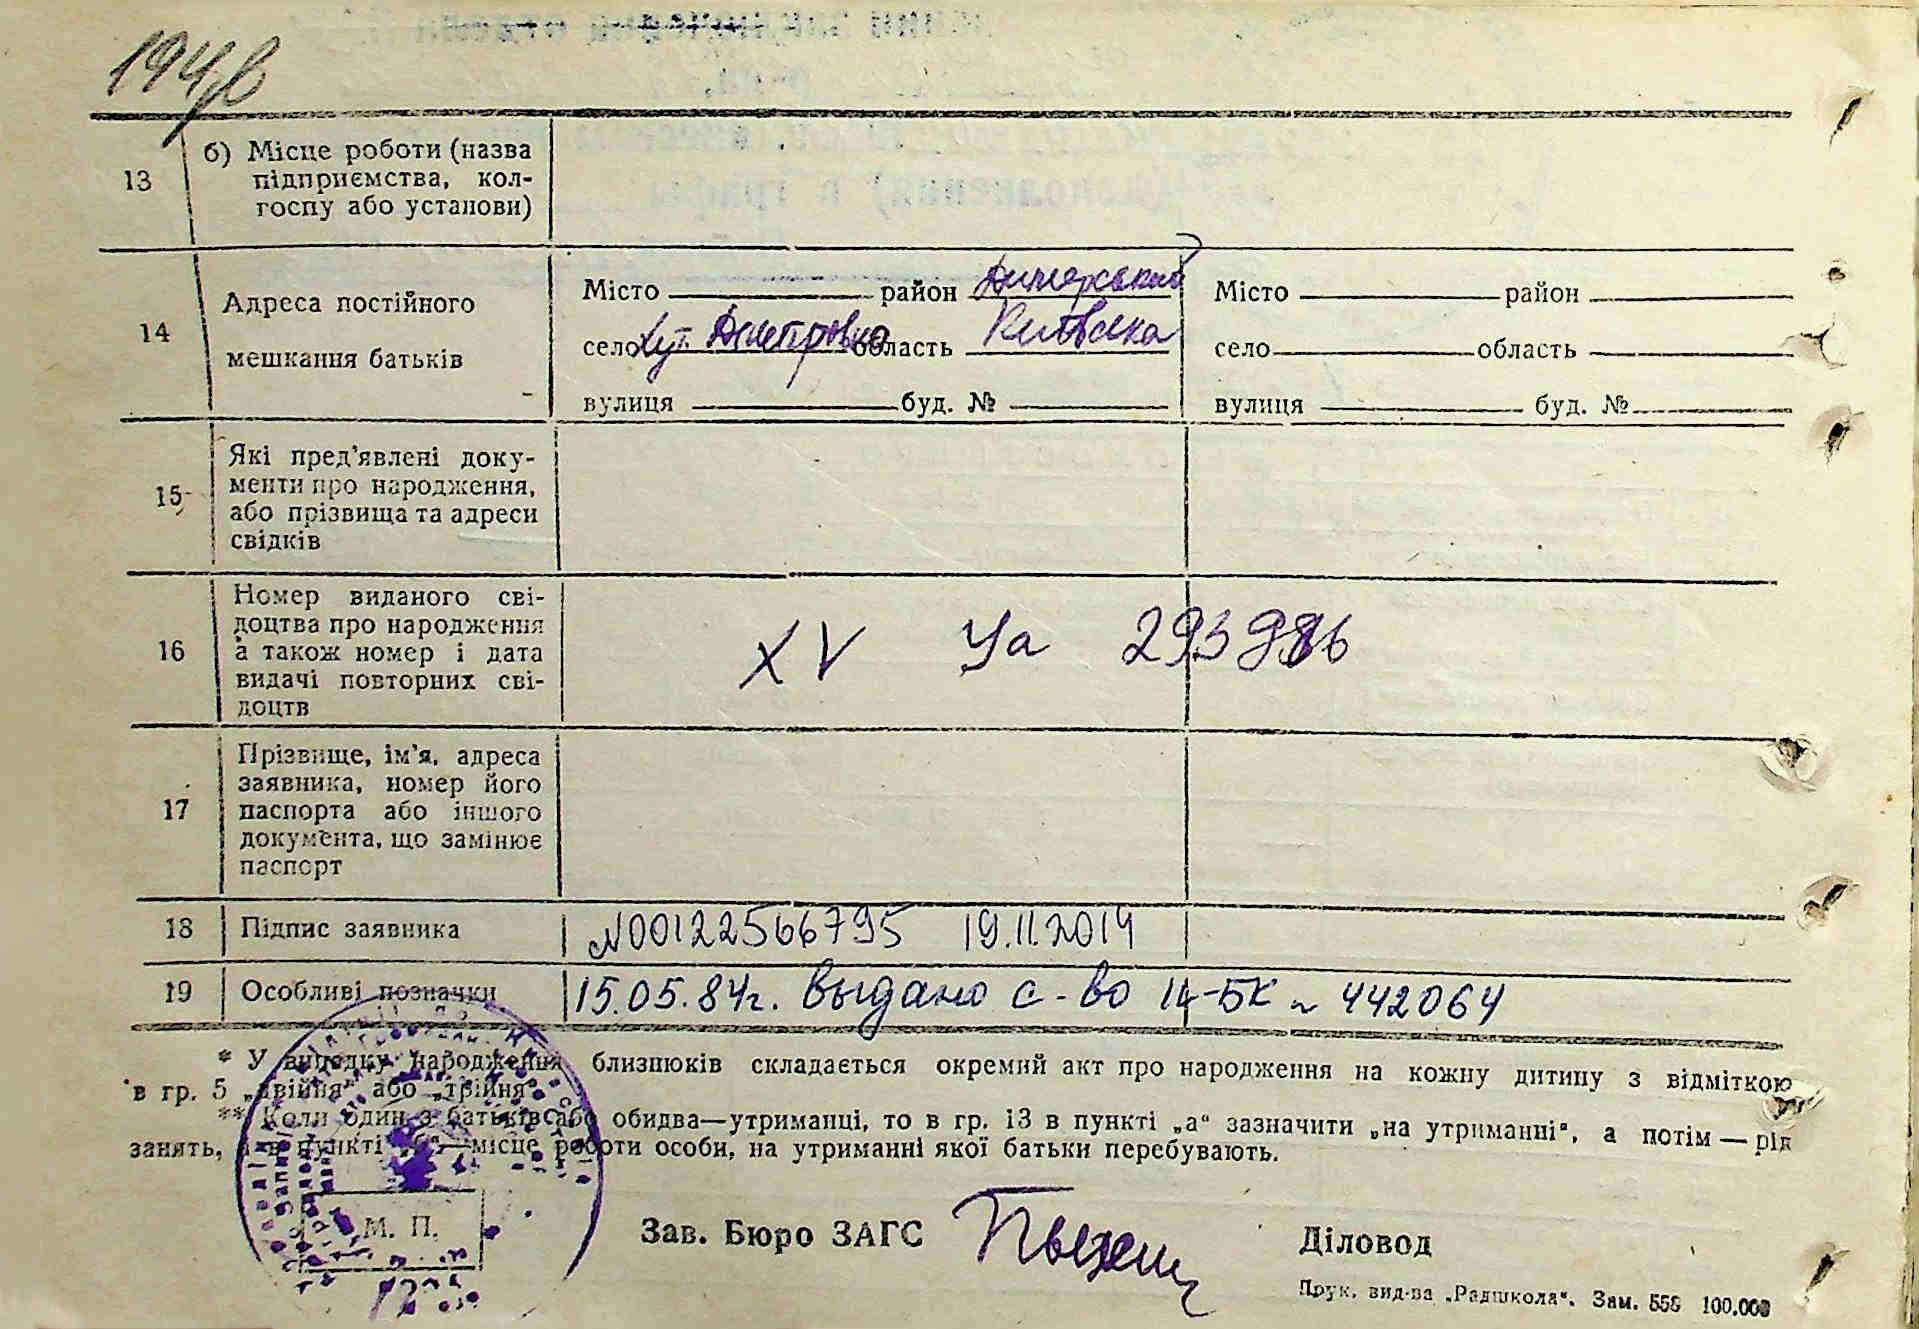 13
б) Місце роботи (назва
підприємства, кол-
госпу або установи)
14
Адреса постійного
мешкання батьків
Місто район Димерський
село хут. Дніпровка область Київська
вулиця буд. №
Місто район
село область
вулиця буд. №
15
Які пред'явлені доку-
менти про народження,
або прізвища та адреси
свідків
16
Номер виданого сві-
доцтва про народження
а також номер і дата
видачі повторних сві-
доцтв
XV Уа
17
Прізвище, ім'я, адреса
заявника, номер його
паспорта або іншого
документа, що замінює
паспорт
18 Підпис заявника N00122566795 19.11.2014
19 Особливі позначки 15.05.84г. Выдано с-во 14-БК № 442064
* У випадку народження близнюків складається окремий акт про народження на кожну дитину з відміткою
в гр. 5 „двійня" або „трійня"
** Коли один з батьків або обидва—утриманці, то в гр. 13 в пункті „а" зазначити „на утриманні", а потім — рід
занять, а в пункті „б"—місце роботи особи, на утриманні якої батьки перебувають.
М. П.
Зав. Бюро ЗАГС
Діловод
Друк. вид-ва „Радшкола". Зам. 558 100.000